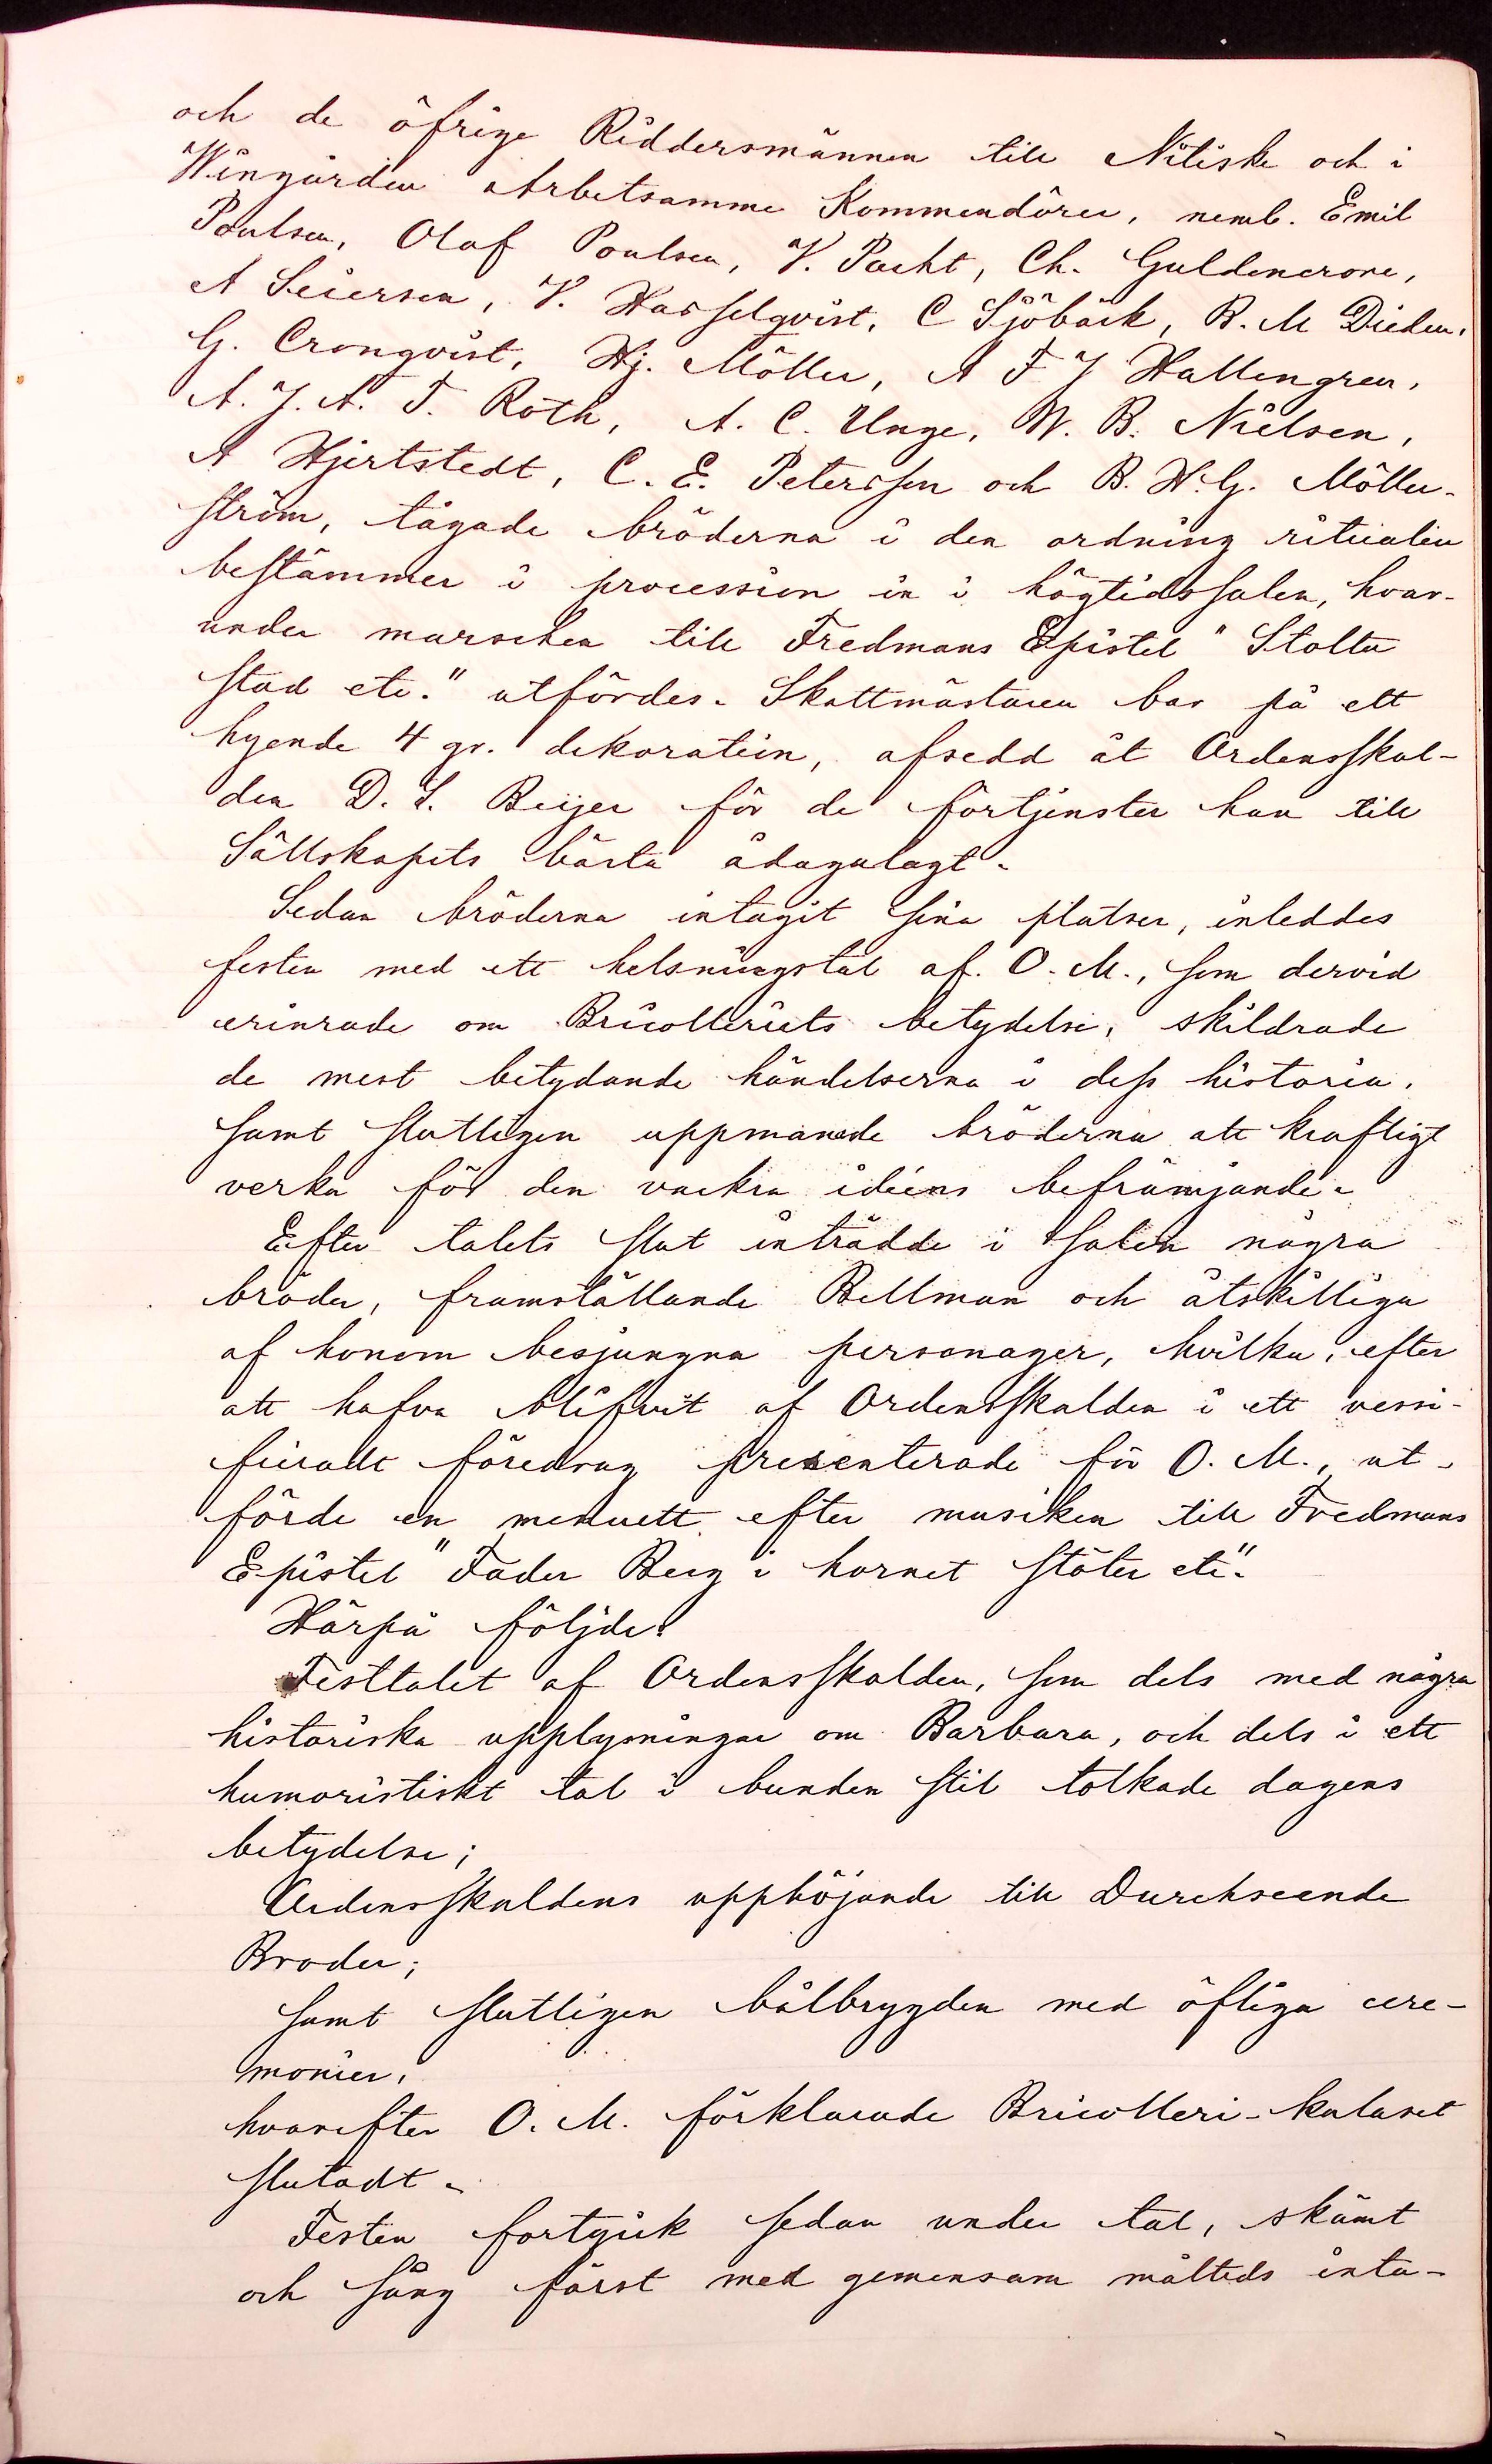 och de öfrige Riddersmännen till Nitiske och i
Wingården Arbetsamme Kommendörer, neml. Emil
Poulsen, Olaf Poulsen, V. Pacht, Ch. Guldencrone,
A Seiersen, V. Hasselqvist, C Sjöbäck, B. M Dieden,
G. Cronqvist, Hj. Möller, A F J Hallengren,
A. J. A. F. Roth, A. C. Unge, W. B. Nielsen,
A Hjertstedt, C. E. Peterssen och B. H. G. Möller-
ström, tågade bröderna i den ordning ritualen
bestämmer i procession in i högtidssalen, hvar-
under marschen till Fredmans Epistel "Stolta
stad etc." utfördes. Skattmästaren bar på ett
hyende 4 gr. dekoration, afsedd åt Ordensskal-
den D. S. Beijer för de förtjenster han till
Sällskapets bästa ådagalagt.
Sedan bröderna intagit sina platser, inleddes
festen med ett helsningstal af O. M., som dervid
erinrade om Bricolleriets betydelse, skildrade
de mest betydande händelserna i dess historia,
samt slutligen uppmanade bröderna att kraftigt
verka för den vackra idéens befrämjande.
Efter talets slut inträdde i salen några
bröder, framställande Bellman och åtskilliga
af honom besjungna personager, hvilka, efter
att hafva blifvit af Ordensskalden i ett versi-
fieradt föredrag presenterade för O. M., ut-
förde en menuett efter musiken till Fredmans
Epistel "Fader Berg i hornet stöter etc".
Härpå följde:
Festtalet af Ordensskalden, som dels med några
historiska upplysningar om Barbara, och dels i ett
humoristiskt tal i bunden stil tolkade dagens
betydelse;
Ordensskaldens upphöjande till Durchseende
Broder;
samt slutligen bålbryggden med öfliga cere-
monier,
hvarefter O. M. förklarade Bricolleri-kalaset
slutadt.
Festen fortgick sedan under tal, skämt
och sång först med gemensam måltids inta-